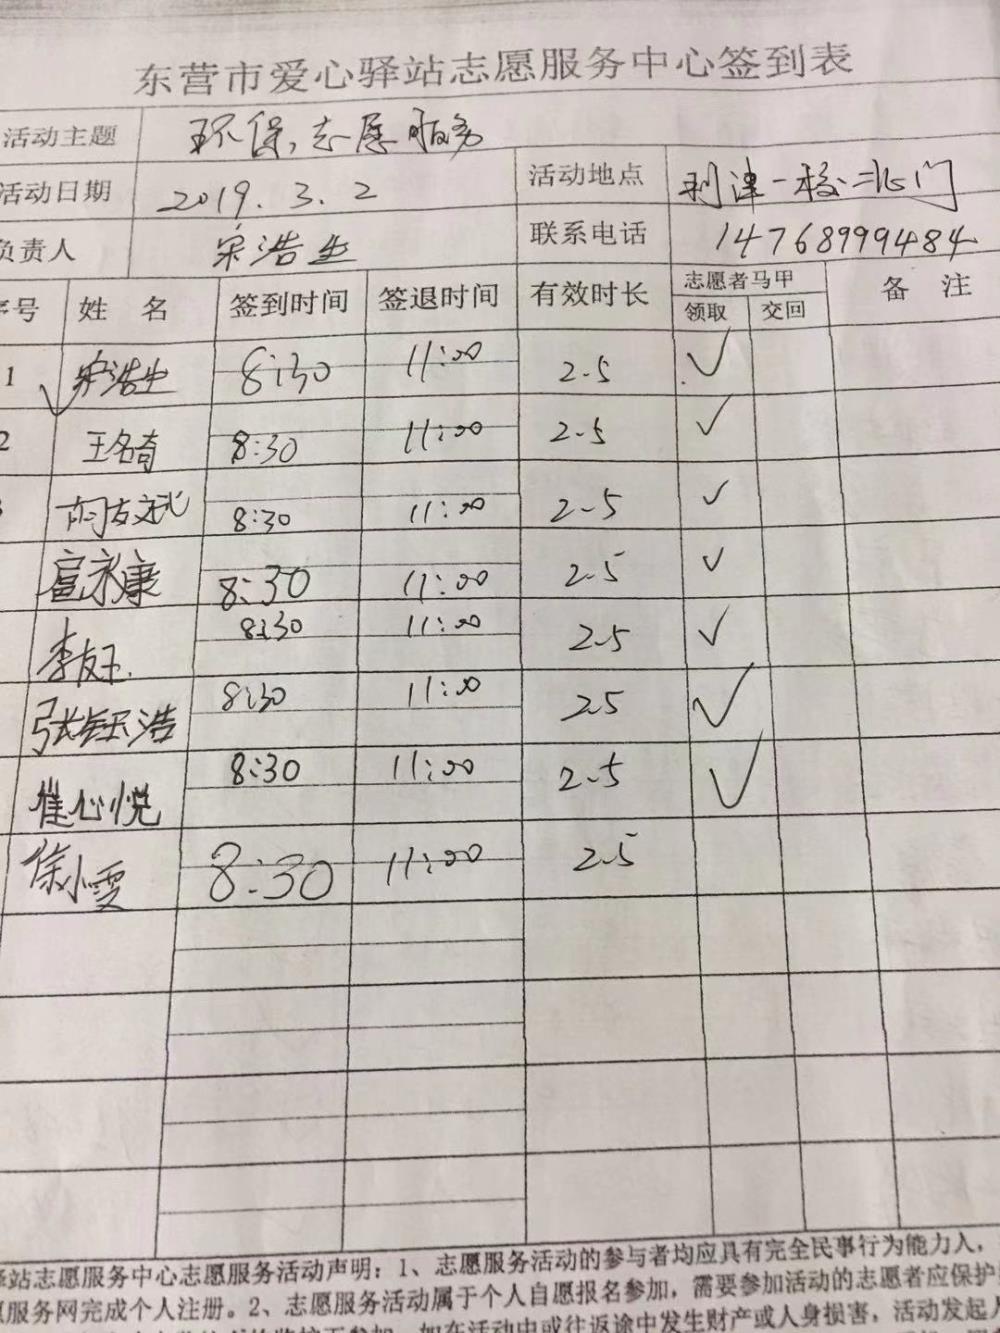 东营市爱心驿站志愿服务中心签到表
活动主题 环保,志愿服务
活动日期 2019.3.2 活动地点 利津一校北门
负责人 宋浩生 联系电话 14768999484
序号 姓 名 签到时间 签退时间 有效时长 志愿者马甲 备 注
领取 交回
1 宋浩生 8:30 11:00 2.5 ✓
2 王名奇 8:30 11:00 2.5 ✓
3 8:30 11:00 2.5 ✓
富永康 8:30 11:00 2.5 ✓
李友玉 8:30 11:00 2.5 ✓
张钰浩 8:30 11:00 2.5 ✓
崔心悦 8:30 11:00 2.5 ✓
徐小雯 8:30 11:00 2.5
驿站志愿服务中心志愿服务活动声明:1、志愿服务活动的参与者均应具有完全民事行为能力人,
愿服务网完成个人注册。2、志愿服务活动属于个人自愿报名参加,需要参加活动的志愿者应保护
如在活动中或往返途中发生财产或人身损害,活动发起人